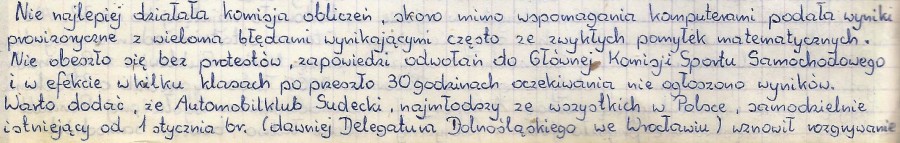 Nie najlepiej działała komisja obliczeń, skoro mimo wspomagania komputerami podała wyniki
prowizoryczne z wieloma błędami wynikającymi często ze zwykłych pomyłek matematycznych.
Nie obeszło się bez protestów, zapowiedzi odwołań do Głównej Komisji Sportu Samochodowego
i w efekcie w kilku klasach po przeszło 30 godzinach oczekiwania nie ogłoszono wyników.
Warto dodać, że Automobilklub Sudecki, najmłodszy ze wszystkich w Polsce, samodzielnie
istniejący od 1 stycznia br. (dawniej Delegatura Dolnośląskiego we Wrocławiu) wznowił rozgrywanie